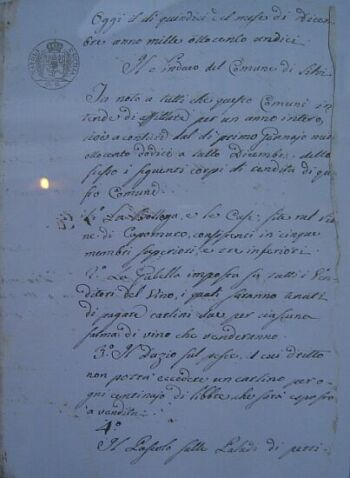 Oggi il dì quindici del mese di Dicem-
bre anno mille ottocento undici.
Il Sindaco del Comune di Silvi
Fa noto a tutti che questo Comune in
tende di affittare per un anno intero,
cioè a contare dal dì primo Gennajo mille
ottocento dodici a tutto Dicembre dello
stesso i seguenti corpi di rendita di que
sto Comune.
1.° La Bottega, e le Case site nel
di Capomuro, consistenti in cinque
membri superiori, e tre inferiori.
2.° La Gabella imposta su tutti i Ven
ditori del Vino, i quali saranno
di pagare carlini due per ciascuna
salma di vino che venderanno.
3.° Il Dazio sul pesce, il cui dritto
non potrà eccedere un carlino per o
gni centinajo di libbre che sarà esposto
a vendita.
4.°
Il Pascolo sulle